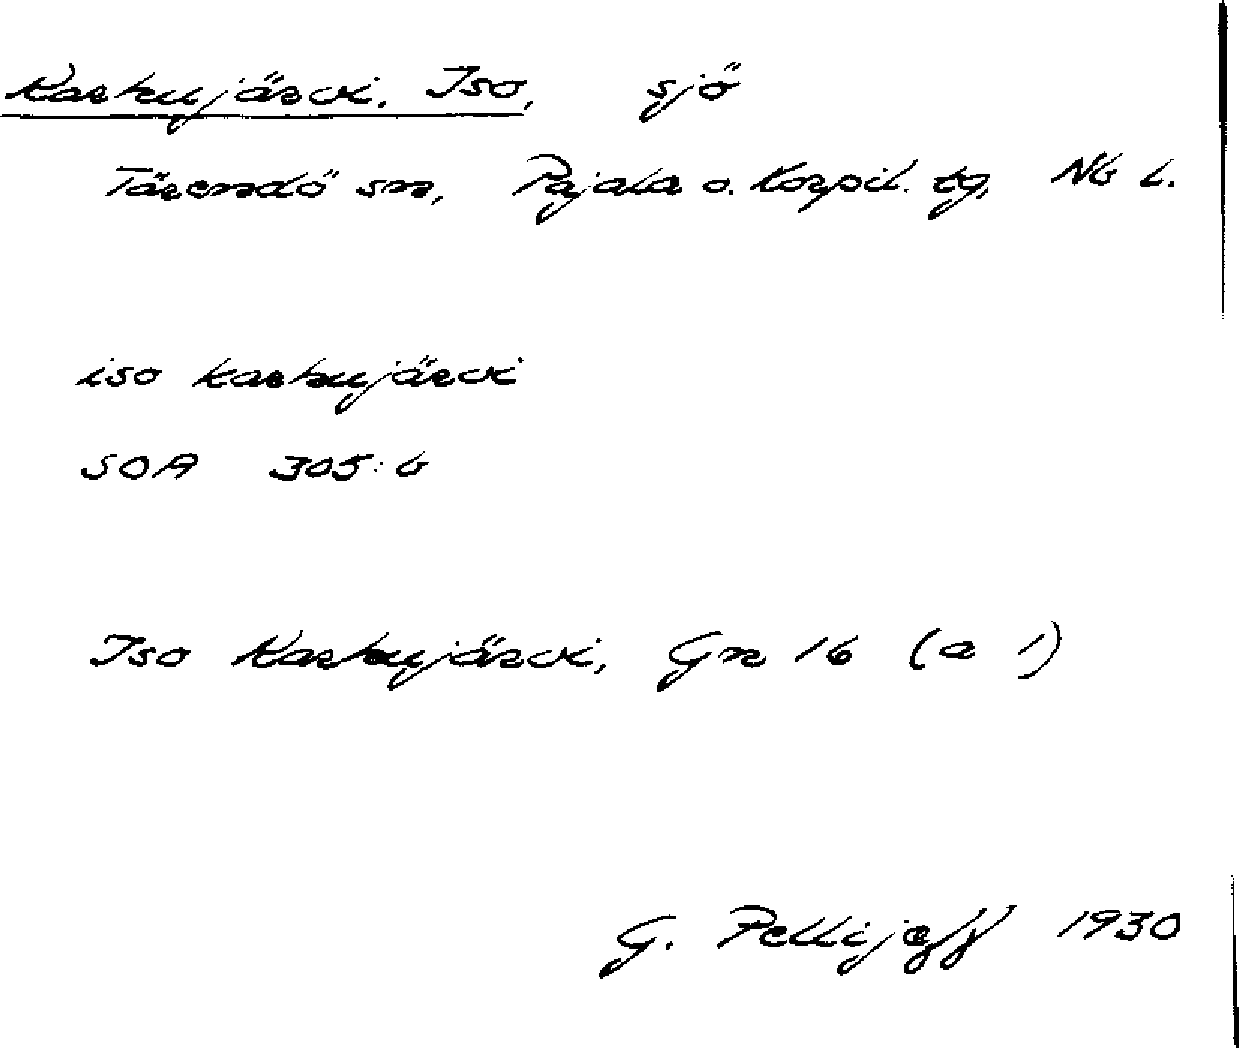 Karhujärvi, Iso, sjö
Tärendö sn, Pajala o. Korpil. tg, Nb L.
iso karhujärvi
SOA 305:6
Iso Karhujärvi, Gr 16 (a 1)
G. Pellijeff 1930